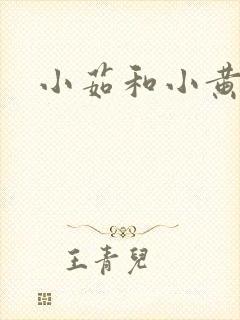 小茹和小黄
王青兒